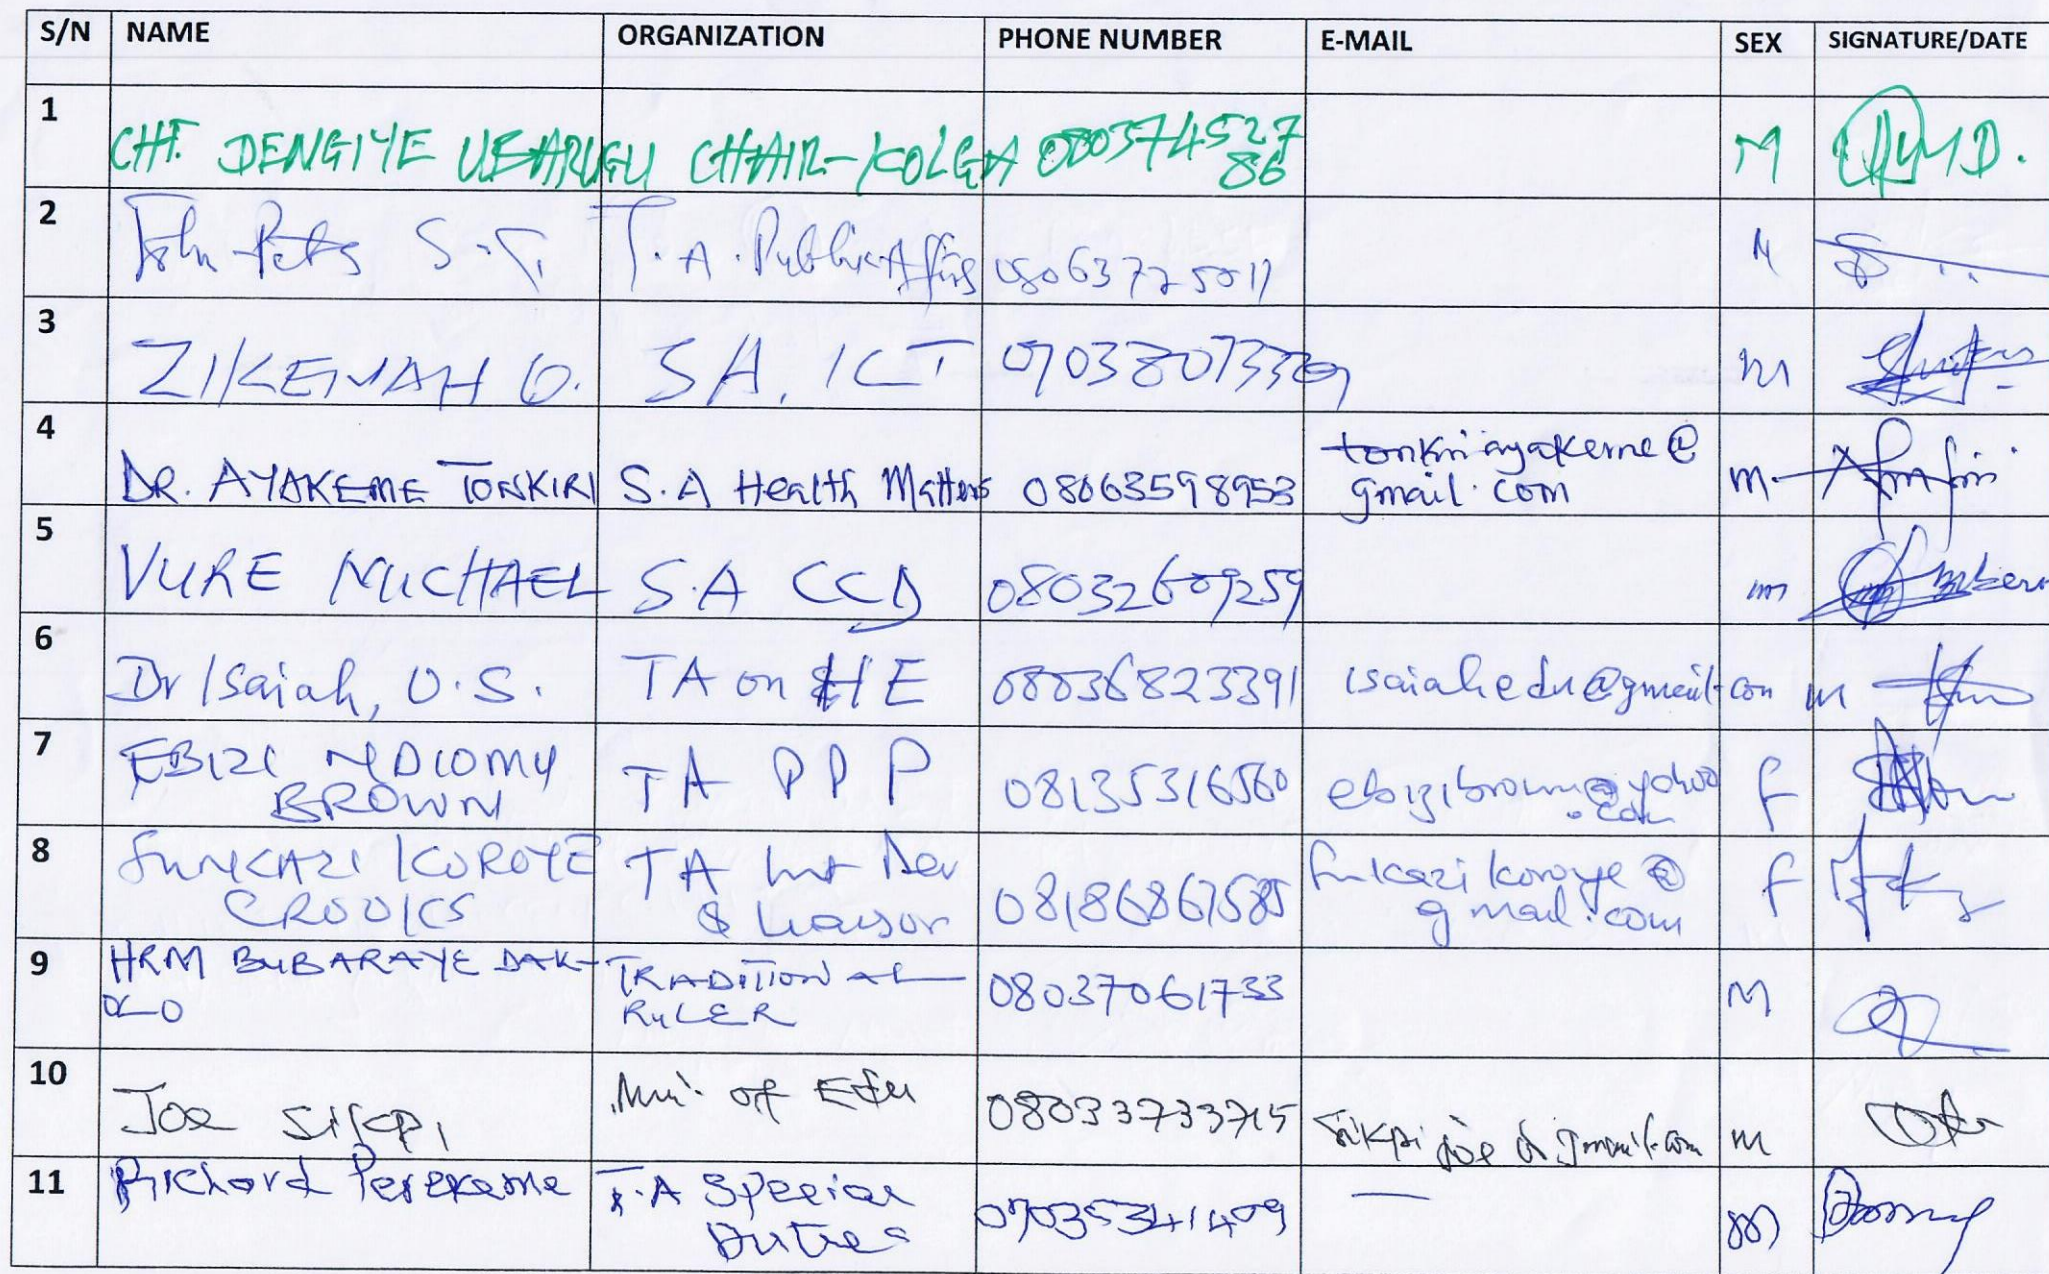 S/N NAME ORGANIZATION PHONE NUMBER E-MAIL SEX SIGNATURE/DATE
1 CHF. DENGIYE UBARUGU CHAIR-KOLGA 080374527
86 M
2 John Peters S.T. T.A. Public Affairs 08063725011 M
3 ZIKENAH O. SA, ICT 07038073339 M
4 DR. AYAKEME TONKIRI S.A Health Matters 08063598953 tonkiriayakeme@
gmail.com m
5 VURE MICHAEL S.A CCD 08032609259 m
6 Dr Isaiah, U.S. TA on HE 08036823391 isaiahedu@gmail.com m
7 EBIZI NDIOMU
BROWN TA PPP 08135316560 ebizibrown@yahoo
.com f
8 FUNKAZI KOROYE
CROOKS TA Int Dev
& Liaison 08186867585 funkazikoroye@
gmail.com f
9 HRM BUBARAYE DAK-
OLO TRADITIONAL
RULER 08037061733 M
10 Joe Sikpi Min. of Edu 08033733715 Sikpijoe@gmail.com m
11 Richard Perekeme T.A Special
Duties 07035341409 — M